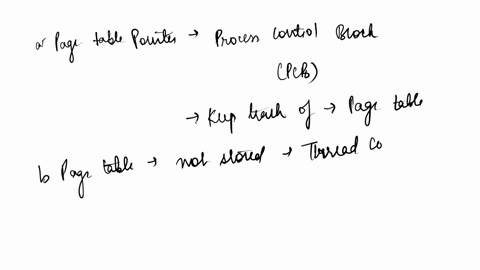 a Page table Pointer → Process control Block
(PCB)
→ Keep track of → Page table
b Page table → not stored → Thread Co